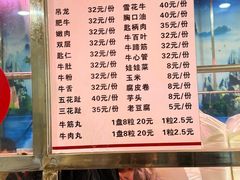 吊龙 32元/份 雪花牛 40元/份
肥牛 32元/份 胸口油 40元/份
嫩肉 32元/份 匙柄肉 35元/份
双层 32元/份 牛百叶 35元/份
匙仁 32元/份 牛蹄筋 32元/份
牛肚 32元/份 牛心管 32元/份
牛粉 32元/份 娃娃菜 8元/份
牛舌 32元/份 玉米 8元/份
五花趾 40元/份 腐皮卷 8元/份
三花趾 35元/份 芋头 8元/份
老豆腐 5元/份
牛筋丸 1盘8粒 20元 1粒2.5元
牛肉丸 1盘8粒 20元 1粒2.5元